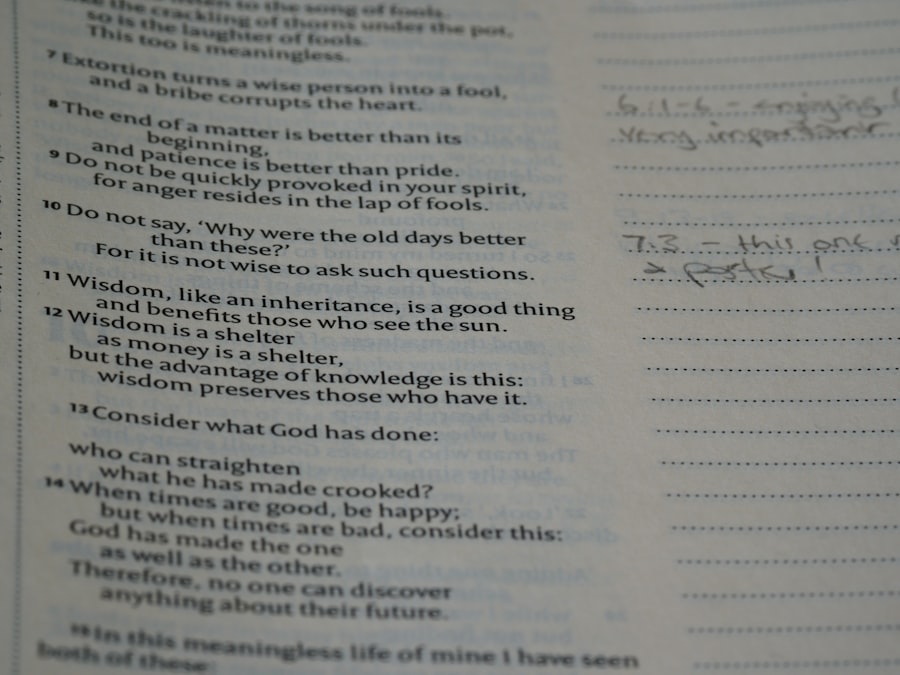 to the song of fools.
the crackling of thorns under the pot,
so is the laughter of fools.
This too is meaningless.
7 Extortion turns a wise person into a fool,
and a bribe corrupts the heart.
8 The end of a matter is better than its
beginning,
and patience is better than pride.
9 Do not be quickly provoked in your spirit,
for anger resides in the lap of fools.
10 Do not say, ‘Why were the old days better
than these?’
For it is not wise to ask such questions.
11 Wisdom, like an inheritance, is a good thing
and benefits those who see the sun.
12 Wisdom is a shelter
as money is a shelter,
but the advantage of knowledge is this:
wisdom preserves those who have it.
13 Consider what God has done:
who can straighten
what he has made crooked?
14 When times are good, be happy;
but when times are bad, consider this:
God has made the one
as well as the other.
Therefore, no one can discover
anything about their future.
15 In this meaningless life of mine I have seen
both of these
6:1-6 - enjoying
very important
7:3 - this one